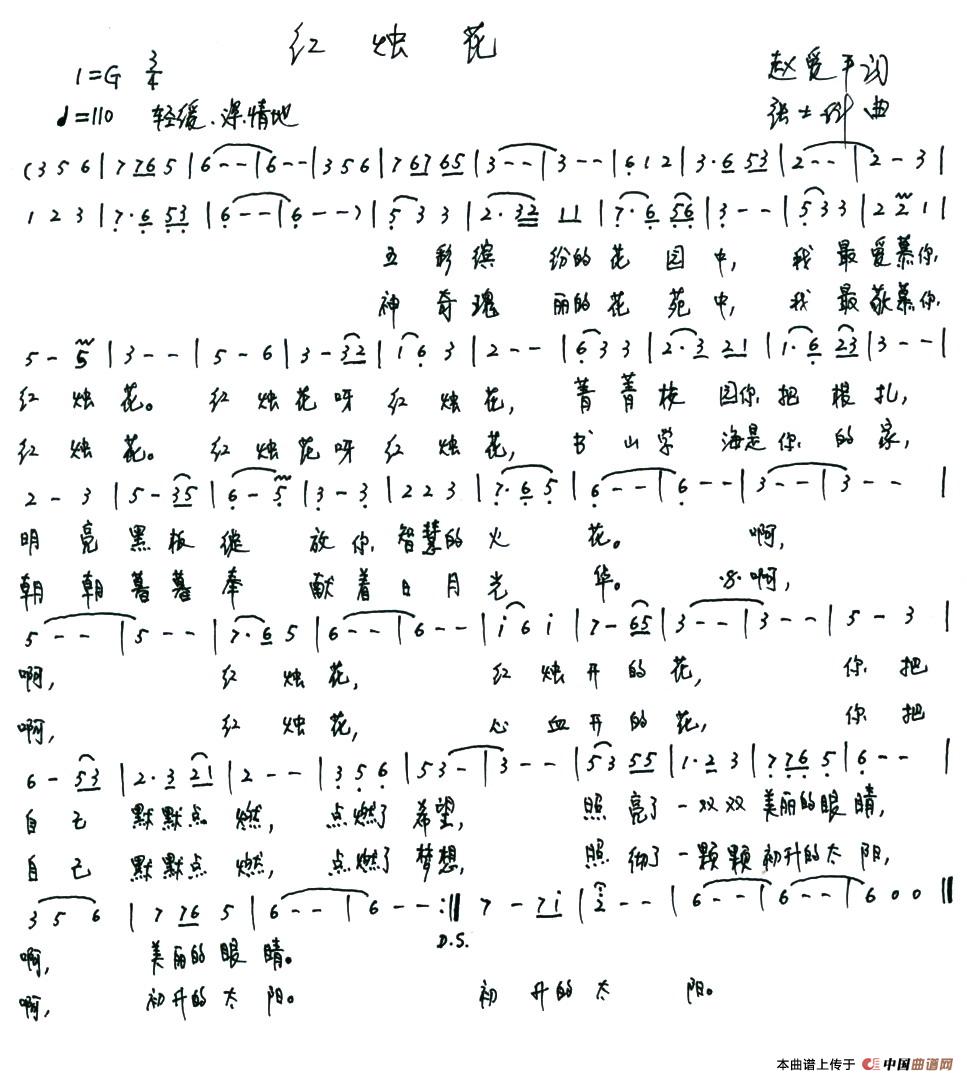 红烛花
1=G 3/4
赵爱平词
♩=110 轻缓、深情地
张士 曲
(3 5 6 | 7 76 5 | 6 - - | 6 - - | 3 5 6 | 7 67 65 | 3 - - | 3 - - | 6 1 2 | 3·6 53 | 2 - - | 2 - 3 |
1 2 3 | 7·6 53 | 6 - - | 6 - -) | 5 3 3 | 2·32 11 | 7·6 56 | 3 - - | 5 3 3 | 2 2 1 |
五彩缤纷的花园中，我最爱慕你
神奇瑰丽的花苑中，我最敬慕你
5 - 5 | 3 - - | 5 - 6 | 3 - 32 | 1 6 3 | 2 - - | 6 3 3 | 2·3 21 | 1·6 23 | 3 - - |
红烛花。红烛花呀红烛花，菁菁校园你把根扎，
红烛花。红烛花呀红烛花，书山学海是你的家，
2 - 3 | 5 - 35 | 6 - 5 | 3 - 3 | 2 2 3 | 7·6 5 | 6 - - | 6 - - | 3 - - | 3 - - |
明亮黑板绽放你智慧的火花。啊，
朝朝暮暮奉献着日月光华。·8·啊，
5 - - | 5 - - | 7·6 5 | 6 - - | 6 - - | i 6 i | 7 - 65 | 3 - - | 3 - - | 5 - 3 |
啊，红烛花，红烛开的花，你把
啊，红烛花，心血开的花，你把
6 - 53 | 2·3 21 | 2 - - | 3 5 6 | 5 3 - | 3 - - | 5 3 55 | 1·2 3 | 7 76 5 | 6 - - |
自己默默点燃，点燃了希望，照亮了一双双美丽的眼睛，
自己默默点燃，点燃了梦想，照彻了一颗颗初升的太阳，
3 5 6 | 7 76 5 | 6 - - | 6 - - :‖ 7 - 7i | 2 - - | 6 - - | 6 - - | 6 0 0 ‖
D.S.
啊，美丽的眼睛。
啊，初升的太阳。初升的太阳。
本曲谱上传于 中国曲谱网